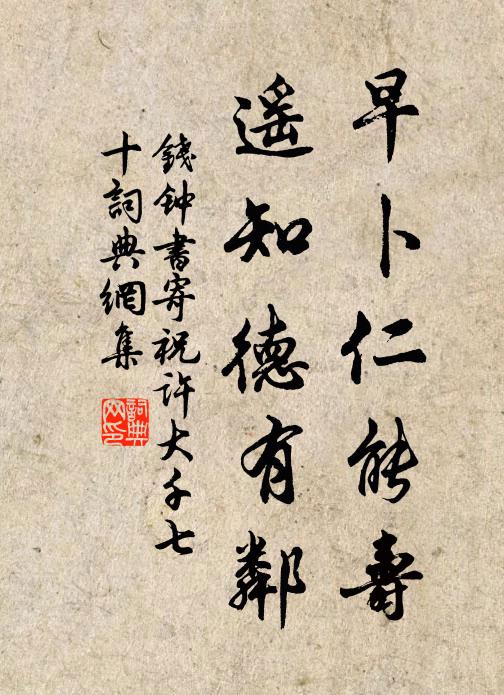 早卜仁能壽
遥知德有鄰
錢钟書寄祝許大千七
十詞典網集
詞典
网印